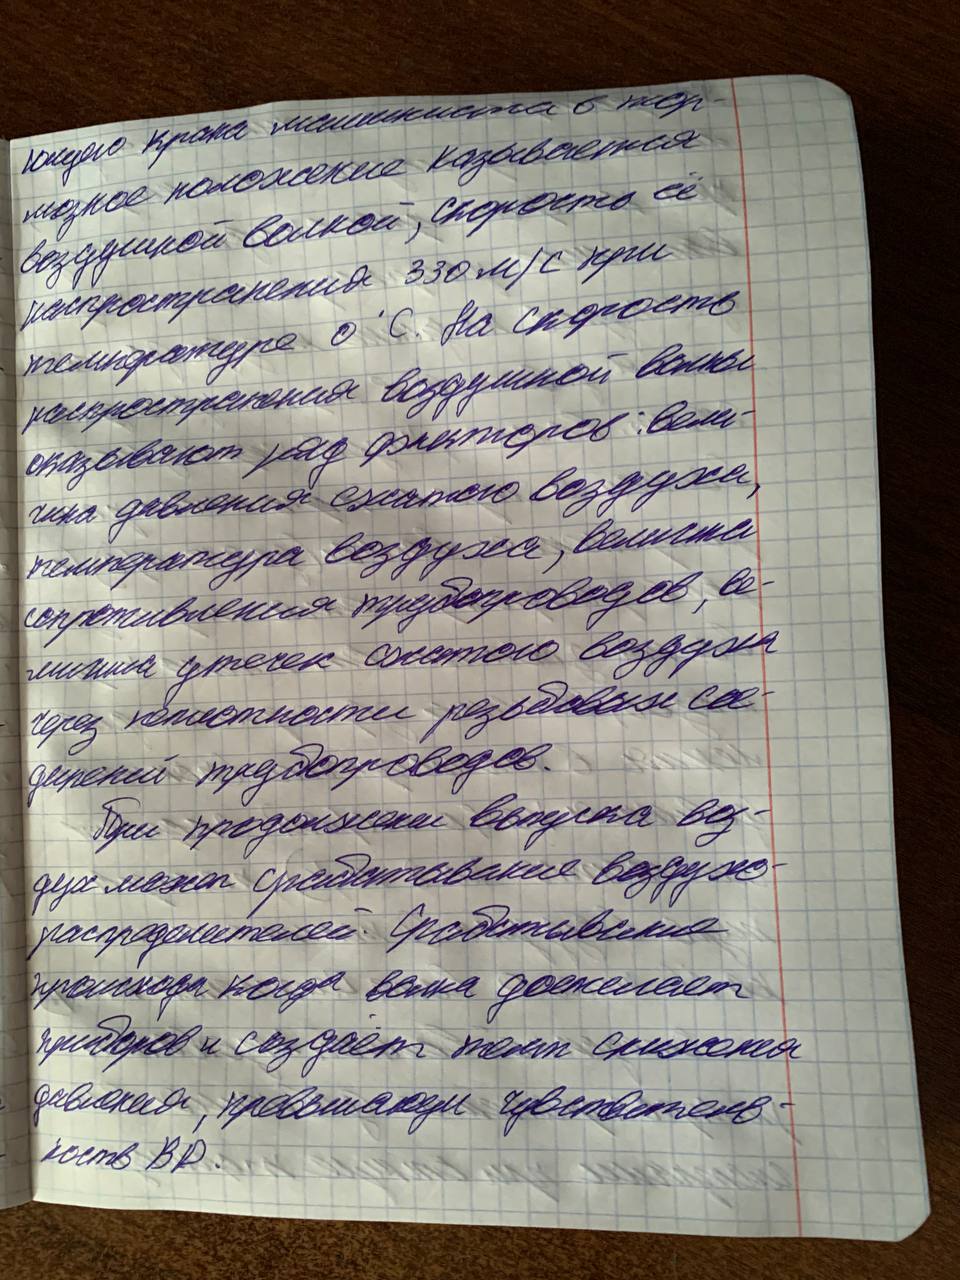 ющего крана машиниста в тор-
мозное положение называется
воздушной волной, скорость её
распространения 330 м/с при
температуре 0°С. На скорость
распространения воздушной волны
оказывают ряд факторов: вели-
чина давления сжатого воздуха,
температура воздуха, величина
сопротивления трубопроводов, ве-
личина утечек сжатого воздуха
через неплотности резьбовых сое-
динений трубопроводов.
При продолжении выпуска воз-
дух может срабатывание воздухо-
распределителей. Срабатывание
происходи когда волна достигает
приборов и создаёт темп снижения
давления, превышающи чувствитель-
ность ВР.